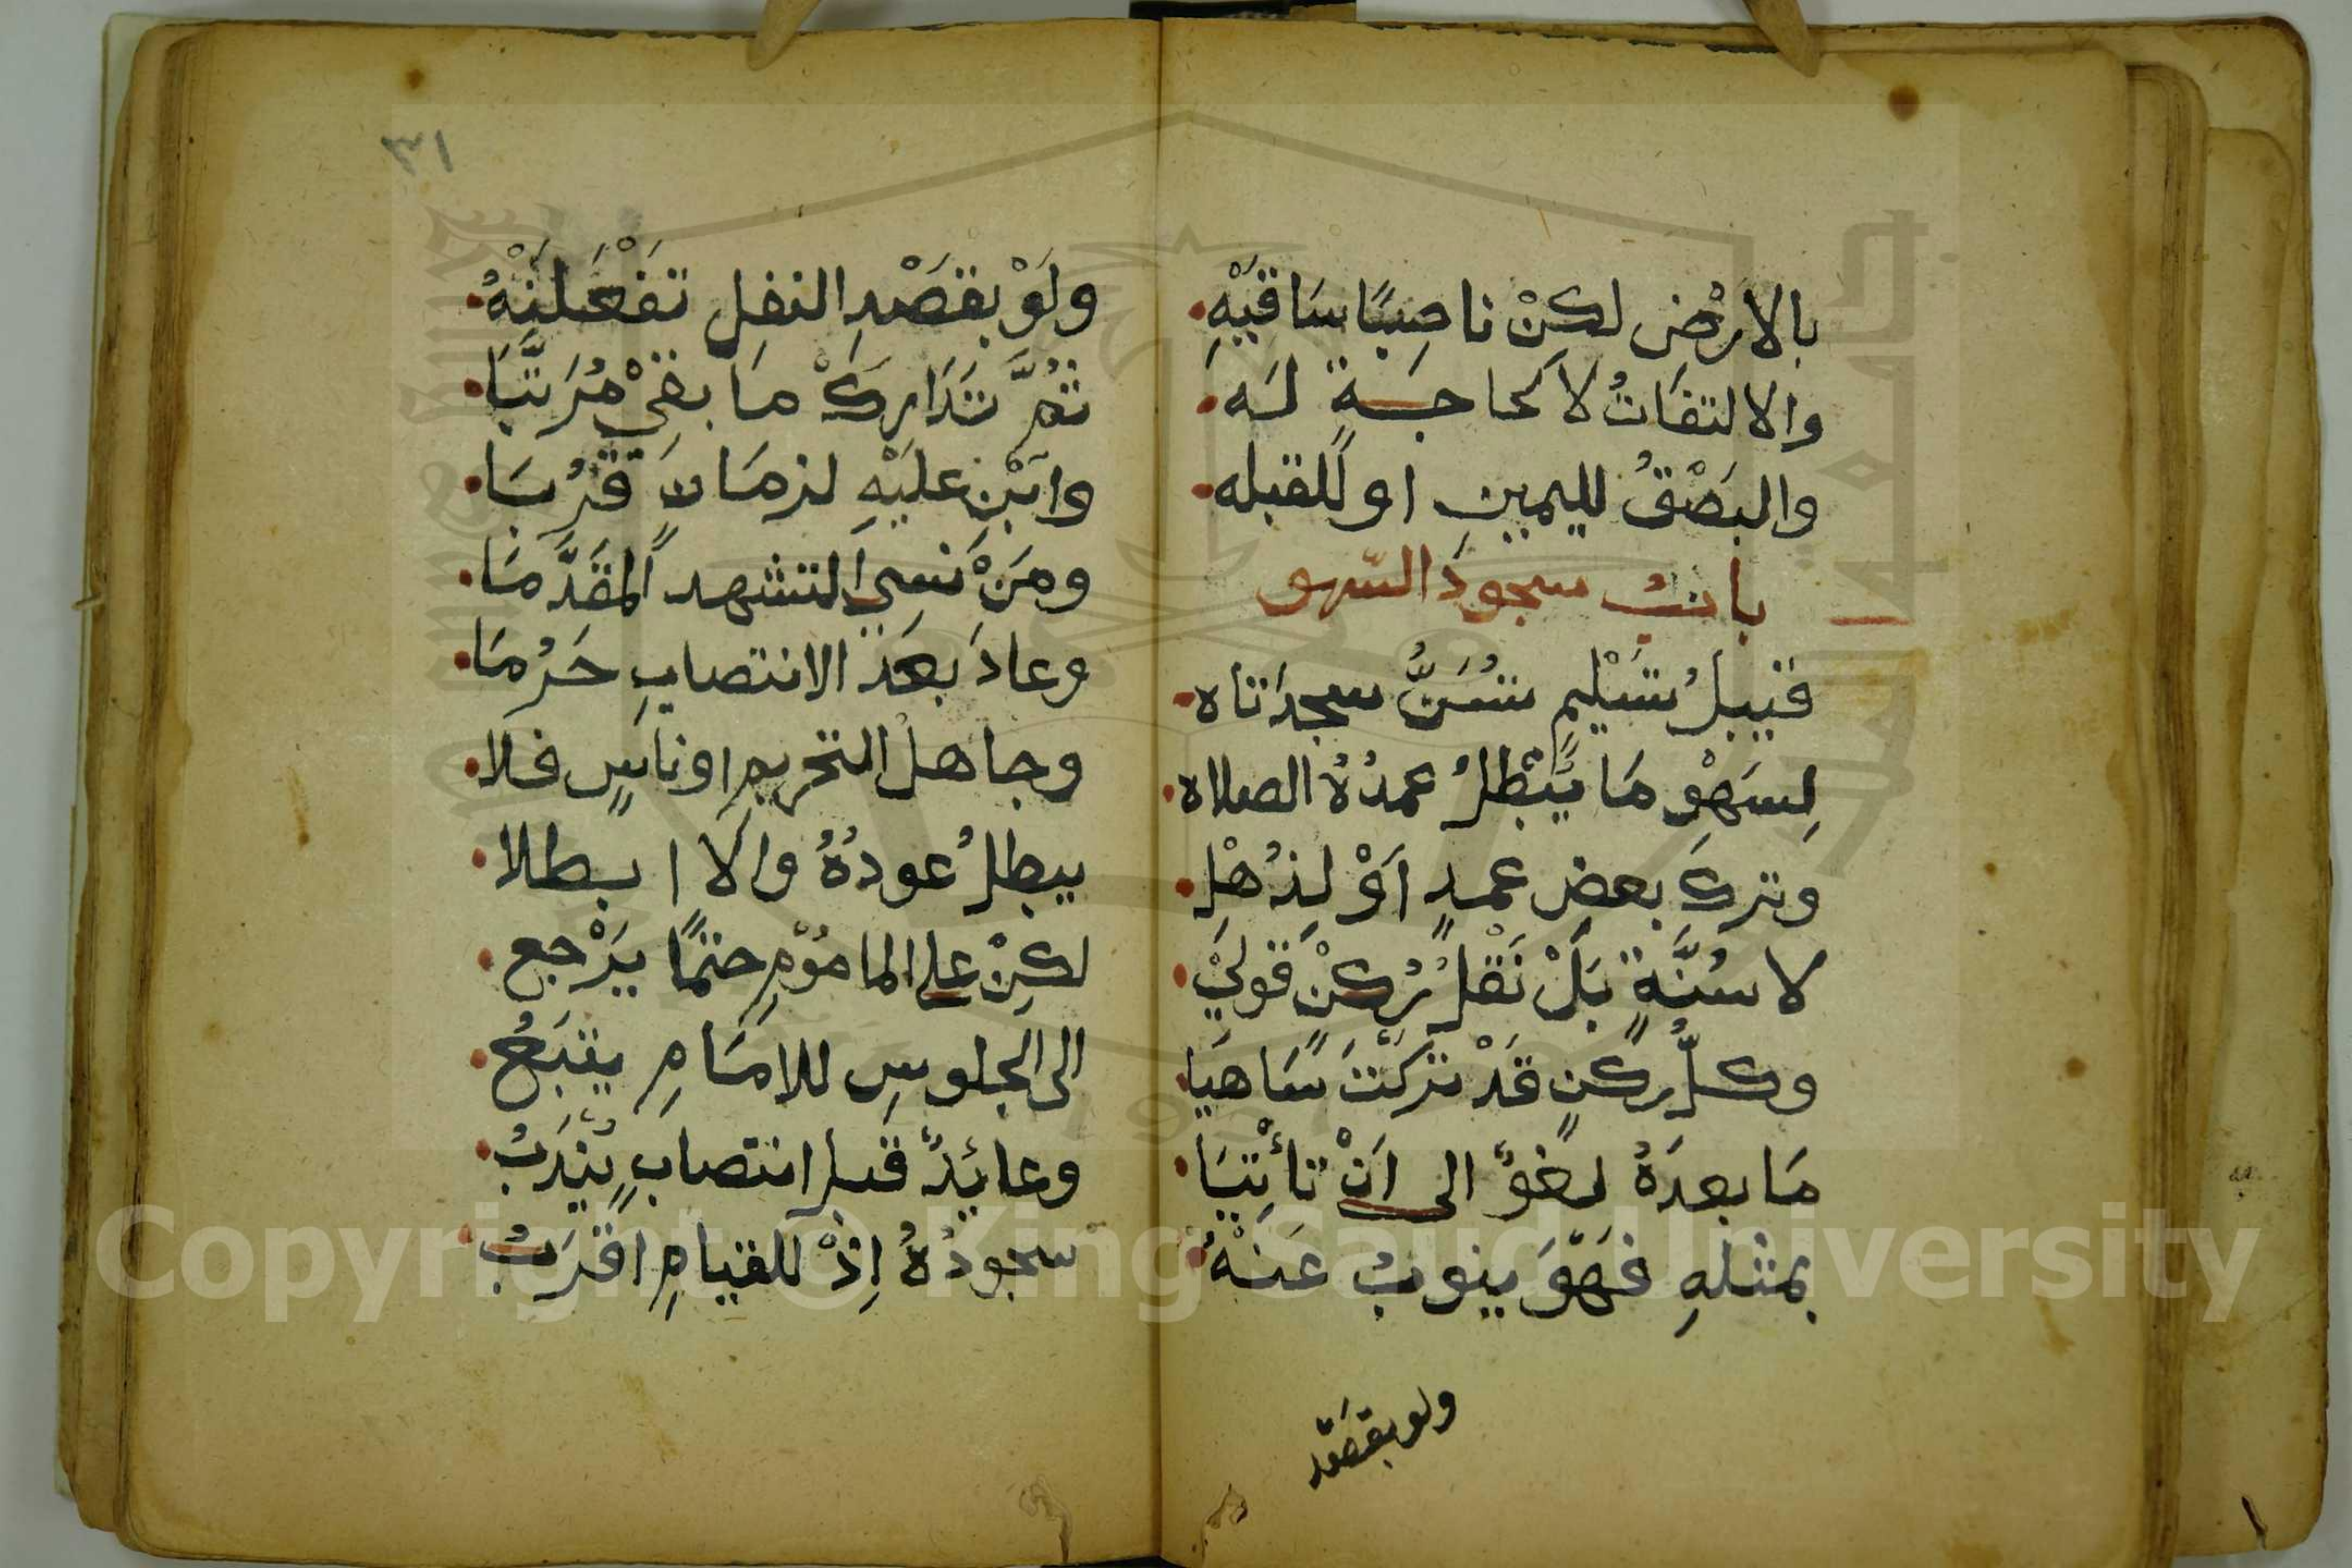 بالارْضِ لكِنْ ناصِبًا سَاقَيْهِ
والالتفَاتُ لا لحاجَةٍ لَه
والبَصْقُ لليمينِ او للقبله
بابُ سجودَ السّهو
قبيلُ تَسْليمٍ تُسَنُّ سجدَتاه
لِسَهْوِ مَا يُبْطِلُ عمدُهُ الصلاه
وتركَ بعضٍ عمدٍ اَوْ لِذُهْلِ
لا سُنَّةٍ بَلْ نَقْلُ رُكْنٍ قَولِيْ
وكلُّ ركنٍ قَدْ تَركْتَ سَاهيَا
مَا بعدَهُ لغوٌ الى اَنْ تَأْتِيَا
بمثلهِ فَهْوَ ينوبُ عَنْهُ
ولو بقصْد
٣١
ولَوْ بقصْدِ النفلِ تَفْعَلَنْهُ
ثمَّ تَدَاركْ مَا بقيْ مُرَتَّبَا
وابْنِ عليْهِ لزمَانٍ قَرُبَا
ومَنْ نَسِي التشهد المقَدَّمَا
وعادَ بعَدَ الانتصابِ حَرُمَا
وجاهلُ التحريمِ او ناسٍ فلا
يبطلُ عودُهُ والا ابطلا
لكِنْ على المامُوْمِ حتمًا يَرْجع
الى الجلوسِ للامَامِ يتبَعُ
وعائِدٌ قبل انتصابٍ يُنْدَبُ
سجودُهُ اِذْ للقيامِ اقرَبُ
Copyright © King Saud University